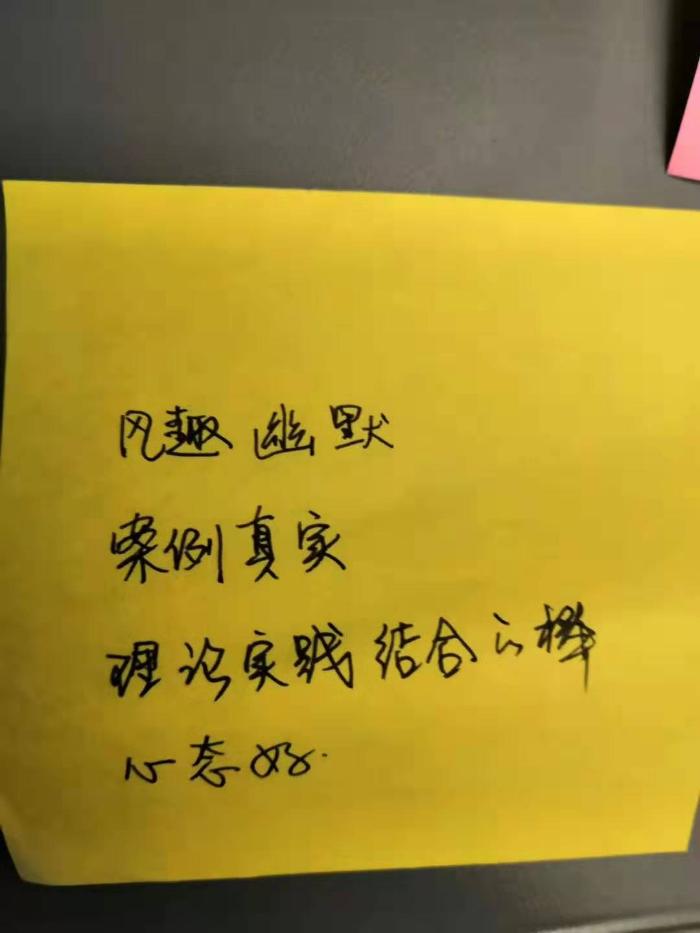 风趣幽默
案例真实
理论实践结合
心态好.